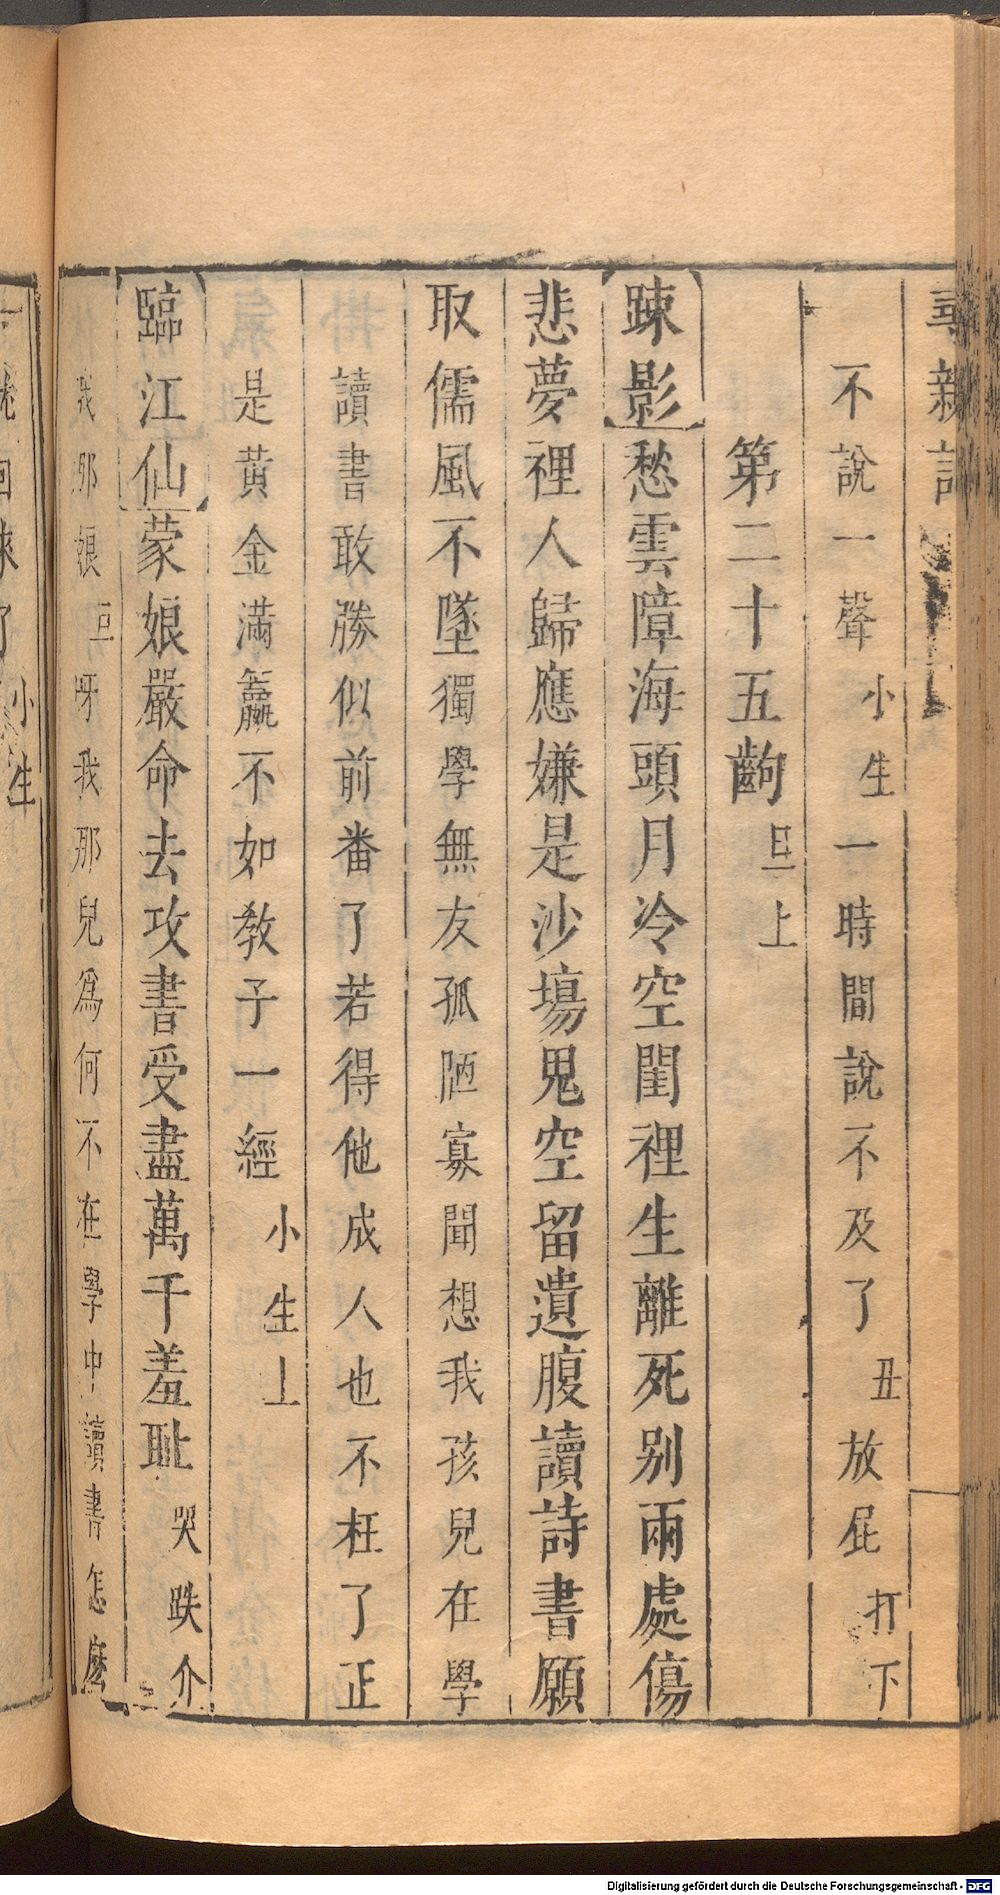 尋親記
不說一聲小生一時間說不及了丑放屁打下
第二十五齣旦上
疎影愁雲障海頭月冷空閨裡生離死别兩處傷
悲夢裡人歸應嫌是沙塲鬼空留遺腹讀詩書願
取儒風不墜獨學無友孤陋寡聞想我孩兒在學
讀書敢勝似前番了若得他成人也不枉了正
是黃金滿籯不如教子一經小生上
臨江仙蒙娘嚴命去攻書受盡萬千羞恥哭跌介
我那娘旦呀我那兒爲何不在學中讀書怎麽
回來了小生
Digitalisierung gefördert durch die Deutsche Forschungsgemeinschaft - DFG